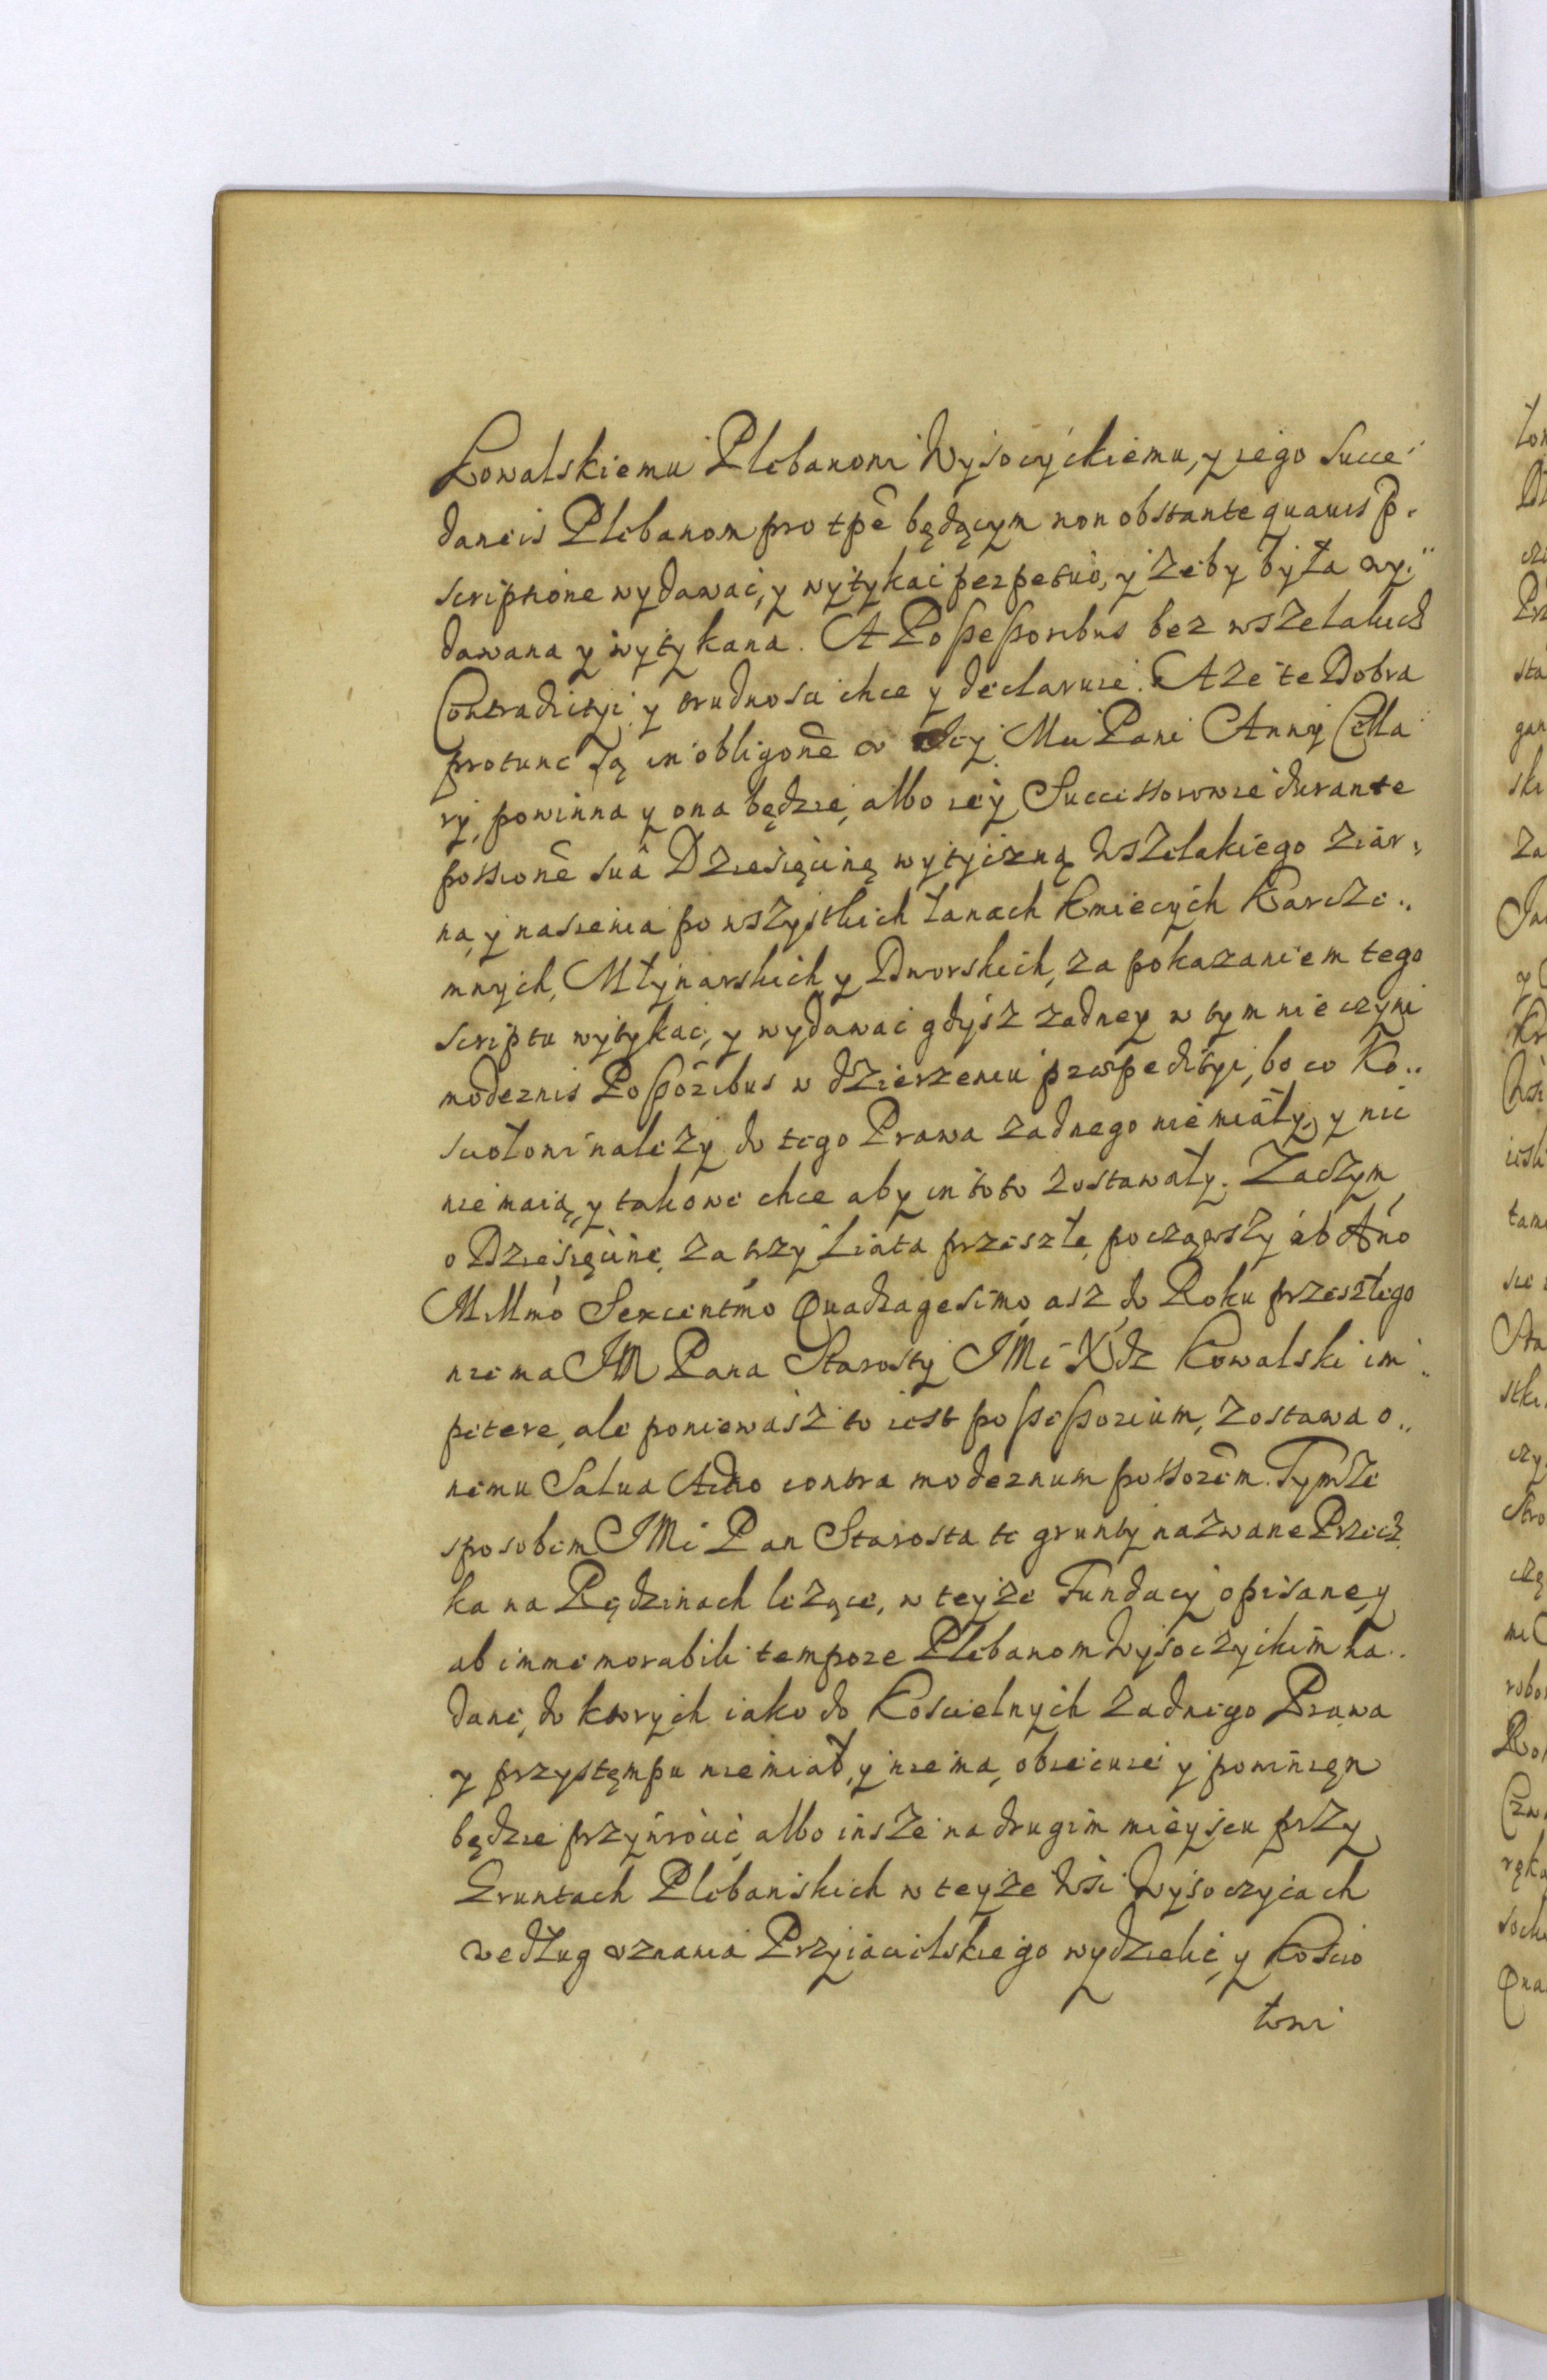 Kowalskiemu Plebanowi Wysocyckiemu, y iego Succe
daneis Plebanom pro tpē będącym non obstante quauis p.
scriptione wydawać, y wytykać perpetuo, y żeby była wy
dawana y wytykana. A Poßeßoribus bez wszelakich
Contradictyi y trudnosci chce y declaruie. A ze te Dobra
protunc są in obligōne v Iey Mci Pani Anny Cella
ry, powinna y ona będzie, albo iey Successorowie durante
possione suâ Dziesięcinę wytyczną wszelakiego ziar,
na, y nasienia po wszystkich łanach Kmiecych Karcze..
mnych, Młynarskich y Dworskich, za pokazaniem tego
scriptu wytykac, y wydawac gdysz zadney w tym nie czyni
modernis Poßoribus w dzierzeniu præpedityi, bo co Ko..
sciołowi nalezy do tego Prawa zadnego nie miały, y nie
nie maią, y takowe chce aby in toto zostawały. Zaczym
o Dziesięcine za trzy Liata przeszłe począwszy ab Añо
Millmo Sexcentmo Quadragesimo asz do Roku przeszłego
nie ma JM Pana Starosty JMć Xdz Kowalski im
petere, ale poniewasz to iest poßeßorium, zostawa o..
nemu Salua Actio contra modernum possorem. Tymze
sposobem JMć Pan Starosta te grunty nazwane Przecz
ka na Pędzinach lezące, w teyze Fundacy opisane, y
ab immemorabili tempore Plebanom Wysoczyckim na..
dane, do ktorych iako do Koscielnych zadnego Prawa
y przystęmpu nie miał, y nie ma, obiecuie y powinięn
będzie przywrócić albo insze na drugim mieyscu przy
Gruntach Plebanskich w teyze Wsi Wysoczycach
według vznania Przyiacielskiego wydzielic, y Koscio
łowi